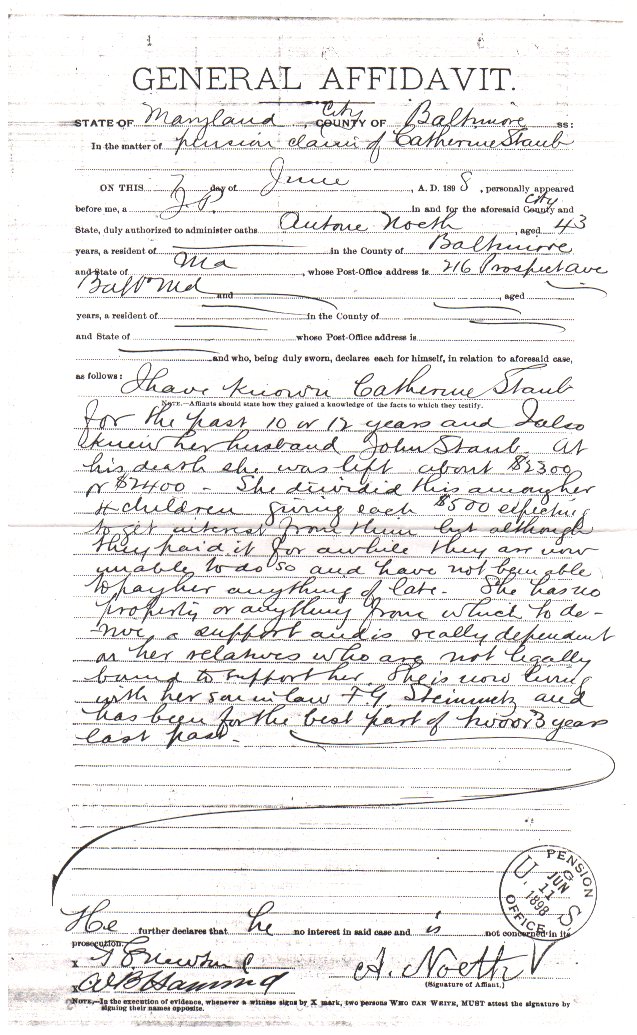 GENERAL AFFIDAVIT.
STATE OF Maryland, City COUNTY OF Baltimore ss:
In the matter of pension claim of Catherine Staub
ON THIS 7 day of June, A. D. 1898, personally appeared
before me, a J.P. in and for the aforesaid County City and
State, duly authorized to administer oaths Antone Noeth, aged 43
years, a resident of in the County of Baltimore
and State of Md, whose Post-Office address is 216 Prospect ave
Balto Md and , aged
years, a resident of in the County of
and State of whose Post-Office address is
and who, being duly sworn, declares each for himself, in relation to aforesaid case,
as follows: I have known Catherine Staub
NOTE.—Affiants should state how they gained a knowledge of the facts to which they testify.
for the past 10 or 12 years and I also
knew her husband John Staub. At
his death she was left about $2300
or $2400 - She divided this among her
4 children giving each $500 expecting
to get interest from them but although
they paid it for awhile they are now
unable to do so and have not been able
to pay her anything of late - She has no
property or anything from which to de-
rive a support and is really dependent
on her relatives who are not legally
bound to support her. She is now living
with her son in law F. G. Steinmetz and
has been for the best part of two or 3 years
last past -
U. S. PENSION OFFICE
JUN 11 1898
He further declares that he no interest in said case and is not concerned in its
prosecution.
x
x W B Hammond
A. Noeth
(Signature of Affiant.)
NOTE.—In the execution of evidence, whenever a witness signs by X mark, two persons WHO CAN WRITE, MUST attest the signature by
signing their names opposite.